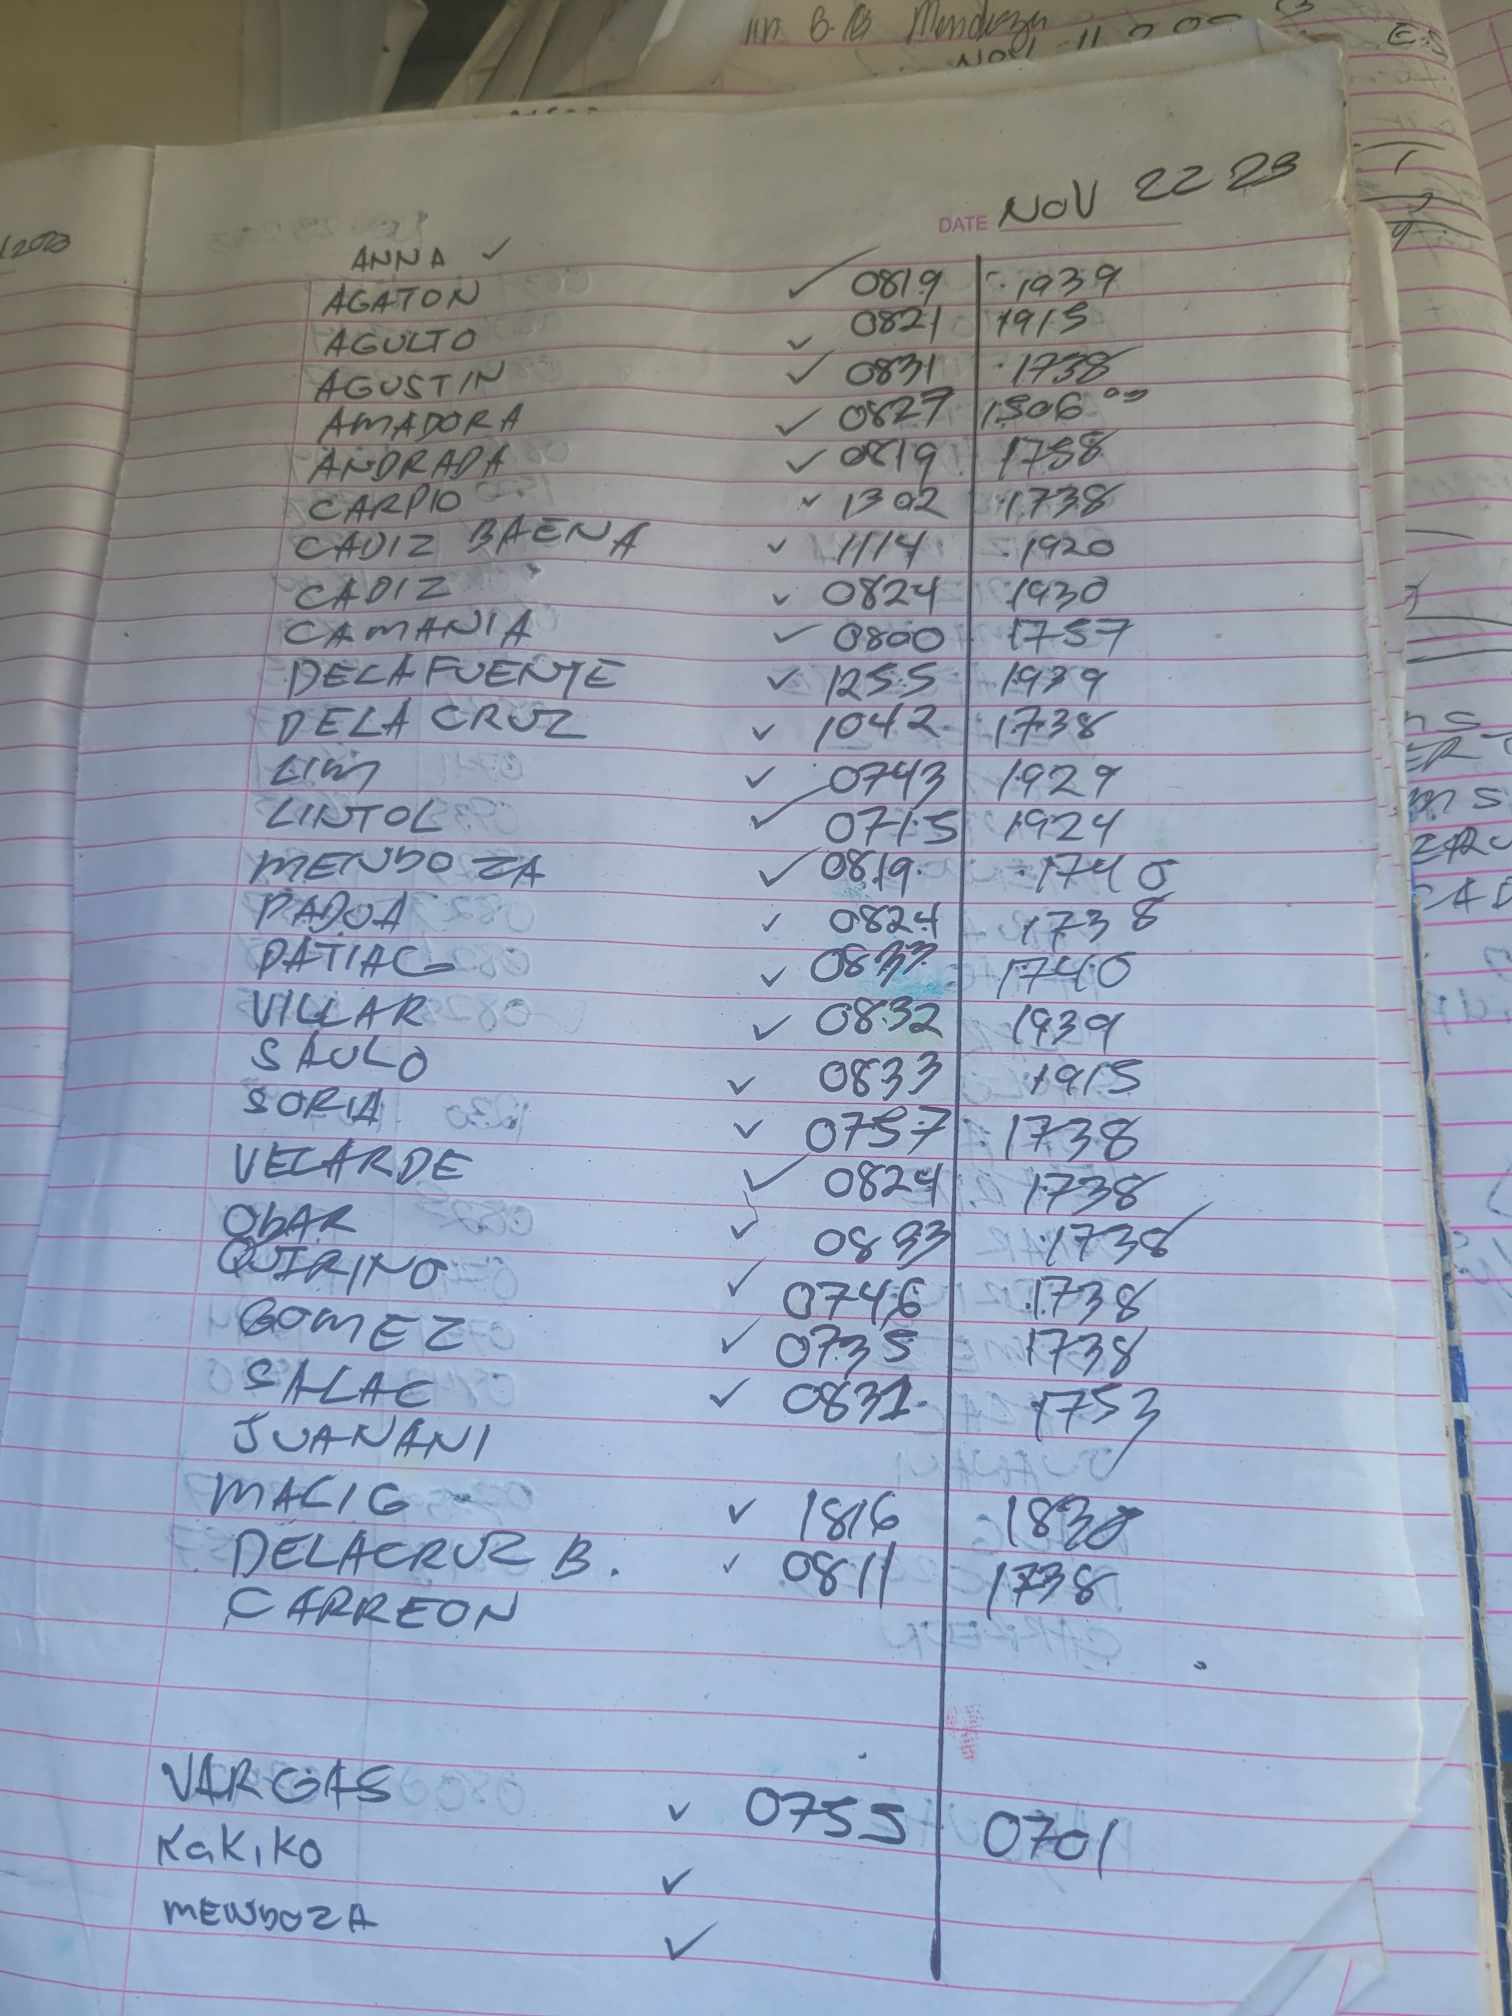 DATE NOV 22 23
ANNA ✓
AGATON ✓ 0819 1939
AGULTO ✓ 0821 1915
AGUSTIN ✓ 0831 1738
AMADORA ✓ 0827 1506 00
ANDRADA ✓ 0819 1758
CARPIO ✓ 1302 1738
CADIZ BAENA ✓ 1114 1920
CADIZ ✓ 0824 1930
CAMANIA ✓ 0800 1757
DELA FUENTE ✓ 1255 1939
DELA CRUZ ✓ 1042 1738
LIM ✓ 0743 1929
LINTOL ✓ 0715 1924
MENDOZA ✓ 0819 1740
PADUA ✓ 0824 1738
PATIAG ✓ 0833 1740
VILLAR ✓ 0832 1939
SAULO ✓ 0833 1915
SORIA ✓ 0757 1738
VELARDE ✓ 0824 1738
ObAR ✓ 0833 1738
QUIRINO ✓ 0746 1738
GOMEZ ✓ 0735 1738
SALAC ✓ 0831 1753
JUANANI
MACIG ✓ 1816 1830
DELACRUZ B. ✓ 0811 1738
CARREON
VARGAS ✓ 0755 0701
KaKiKo ✓
MENDOZA ✓